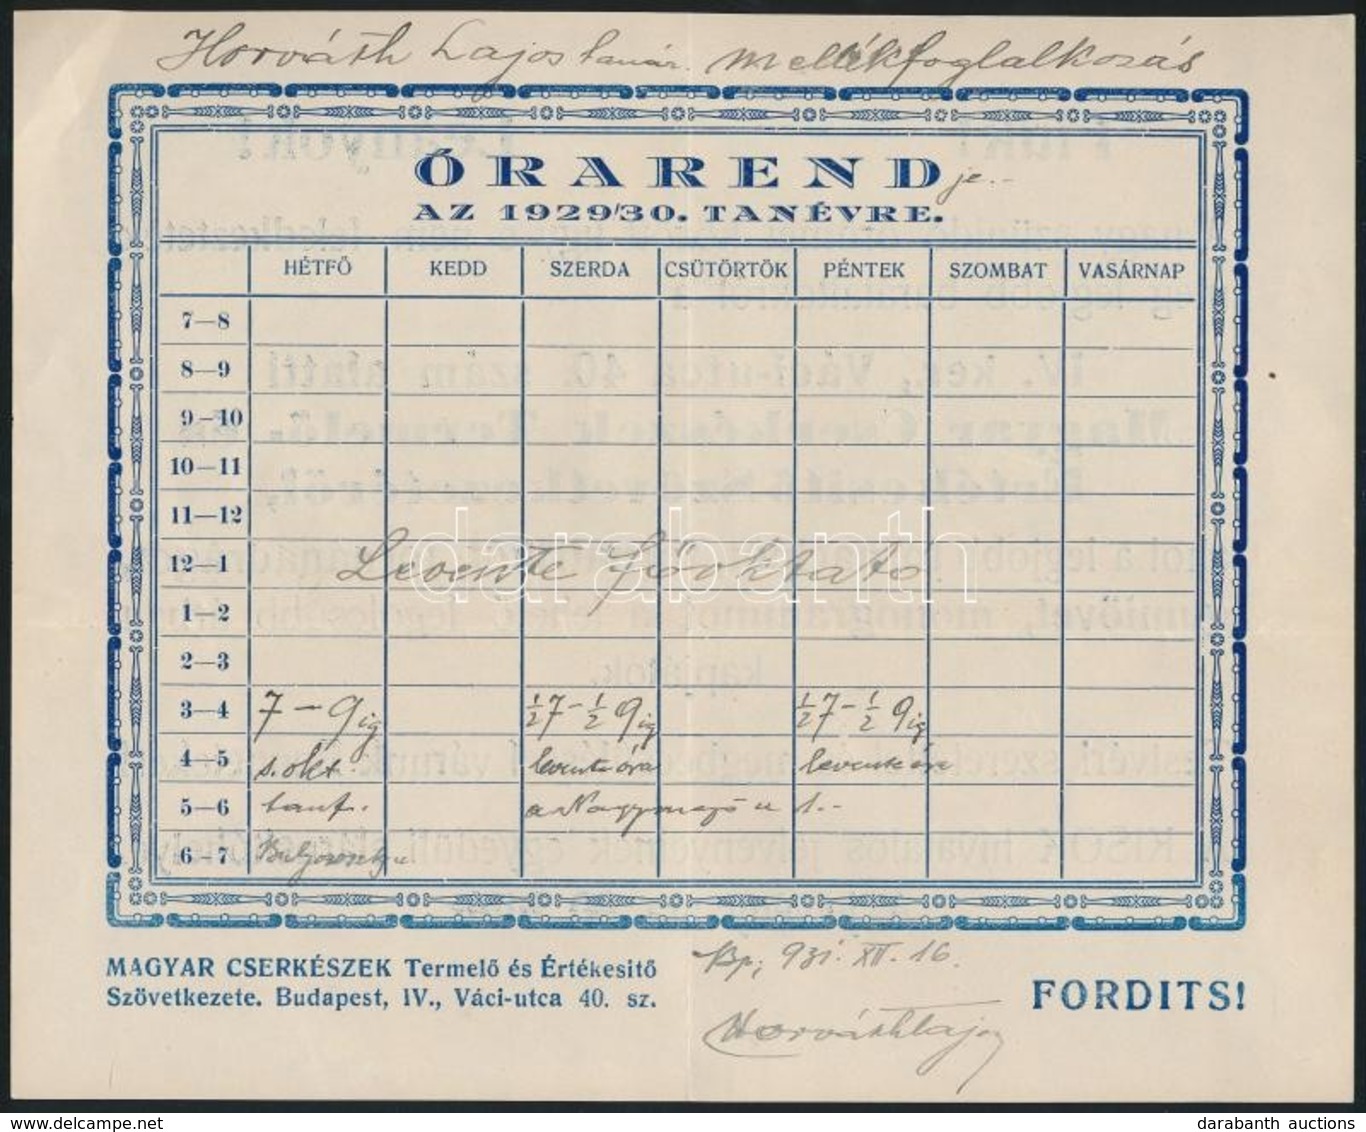 Horváth Lajos tanár. mellékfoglalkozás
ÓRAREND je.-
AZ 1929/30. TANÉVRE.
HÉTFŐ KEDD SZERDA CSÜTÖRTÖK PÉNTEK SZOMBAT VASÁRNAP
7—8
8—9
9—10
10—11
11—12
darabanth
12—1 Levente Főoktató
1—2
2—3
3—4 7 – 9 ig ½7 - ½ 9 ig ½7 - ½ 9 ig
4—5 s. okt levente óra levente óra
5—6 tanf. a Nagymező u 1.-
6—7
MAGYAR CSERKÉSZEK Termelő és Értékesitő
Szövetkezete. Budapest, IV., Váci-utca 40. sz.
Bp, 931. XII. 16.
FORDITS!
Horváth Lajos
darabanth auctions